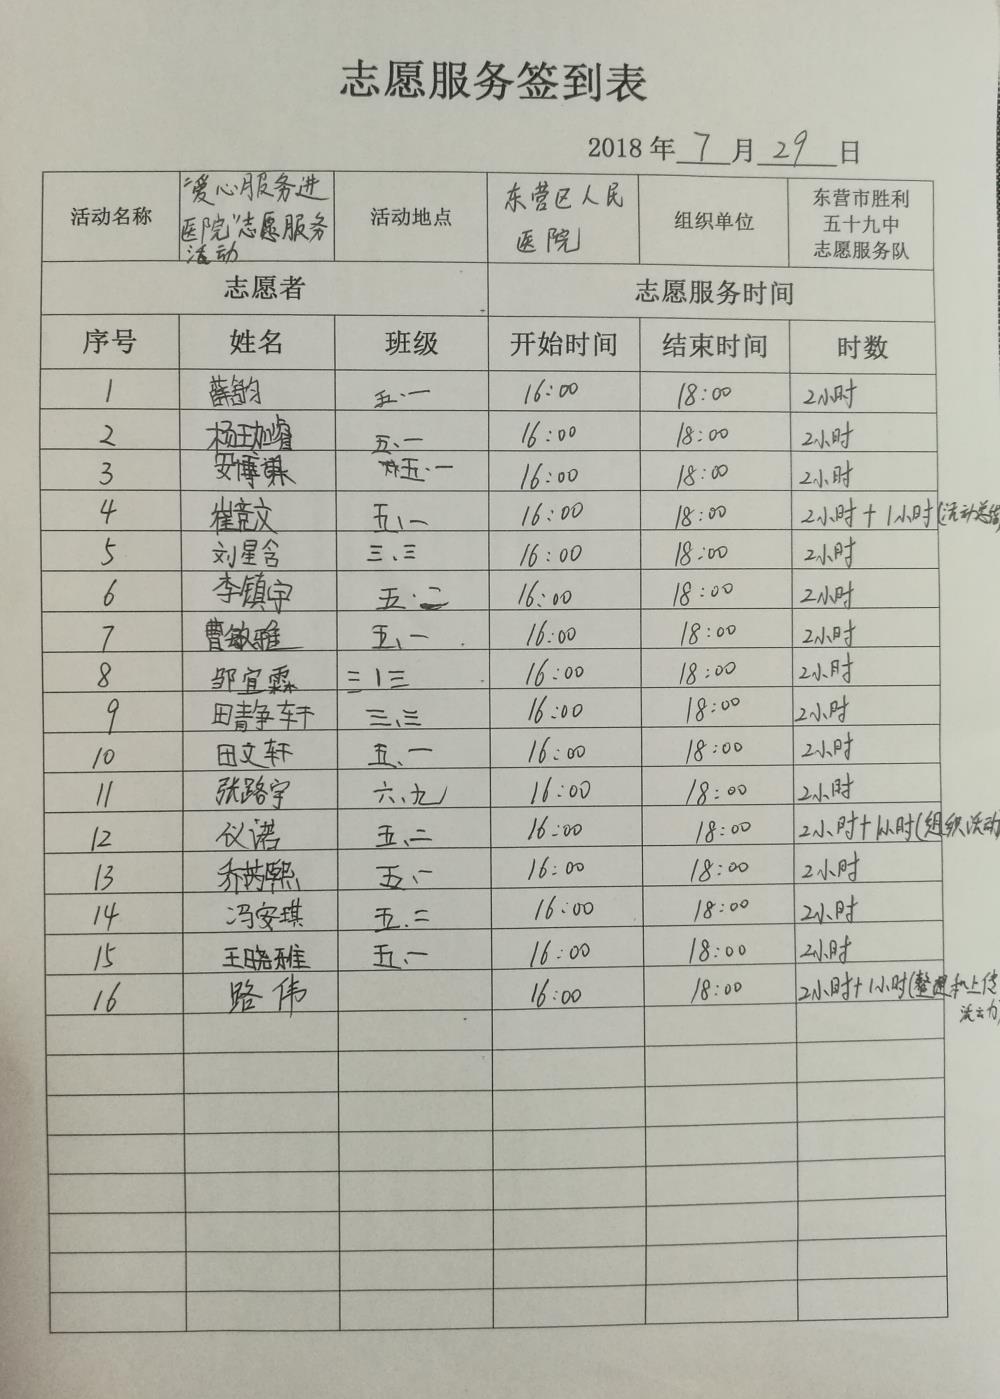 志愿服务签到表
2018 年 7 月 29 日
活动名称 "爱心服务进医院"志愿服务活动 活动地点 东营区人民医院 组织单位 东营市胜利五十九中志愿服务队
志愿者 志愿服务时间
序号 姓名 班级 开始时间 结束时间 时数
1 薛韵 五.一 16:00 18:00 2小时
2 杨王加睿 五、一 16:00 18:00 2小时
3 安博 五.一 16:00 18:00 2小时
4 崔竞文 五、一 16:00 18:00 2小时+1小时(活动总结)
5 刘星含 三、三 16:00 18:00 2小时
6 李镇宇 五.二 16:00 18:00 2小时
7 曹敏雅 五、一 16:00 18:00 2小时
8 邹宜霖 三1三 16:00 18:00 2小时
9 田静轩 三、三 16:00 18:00 2小时
10 田文轩 五、一 16:00 18:00 2小时
11 张路宇 六、九 16:00 18:00 2小时
12 仪诺 五、二 16:00 18:00 2小时+1小时(组织活动
13 乔芮熙 五、一 16:00 18:00 2小时
14 冯安琪 五、二 16:00 18:00 2小时
15 王晓雅 五、一 16:00 18:00 2小时
16 路伟 16:00 18:00 2小时+1小时(整理和上传活动)